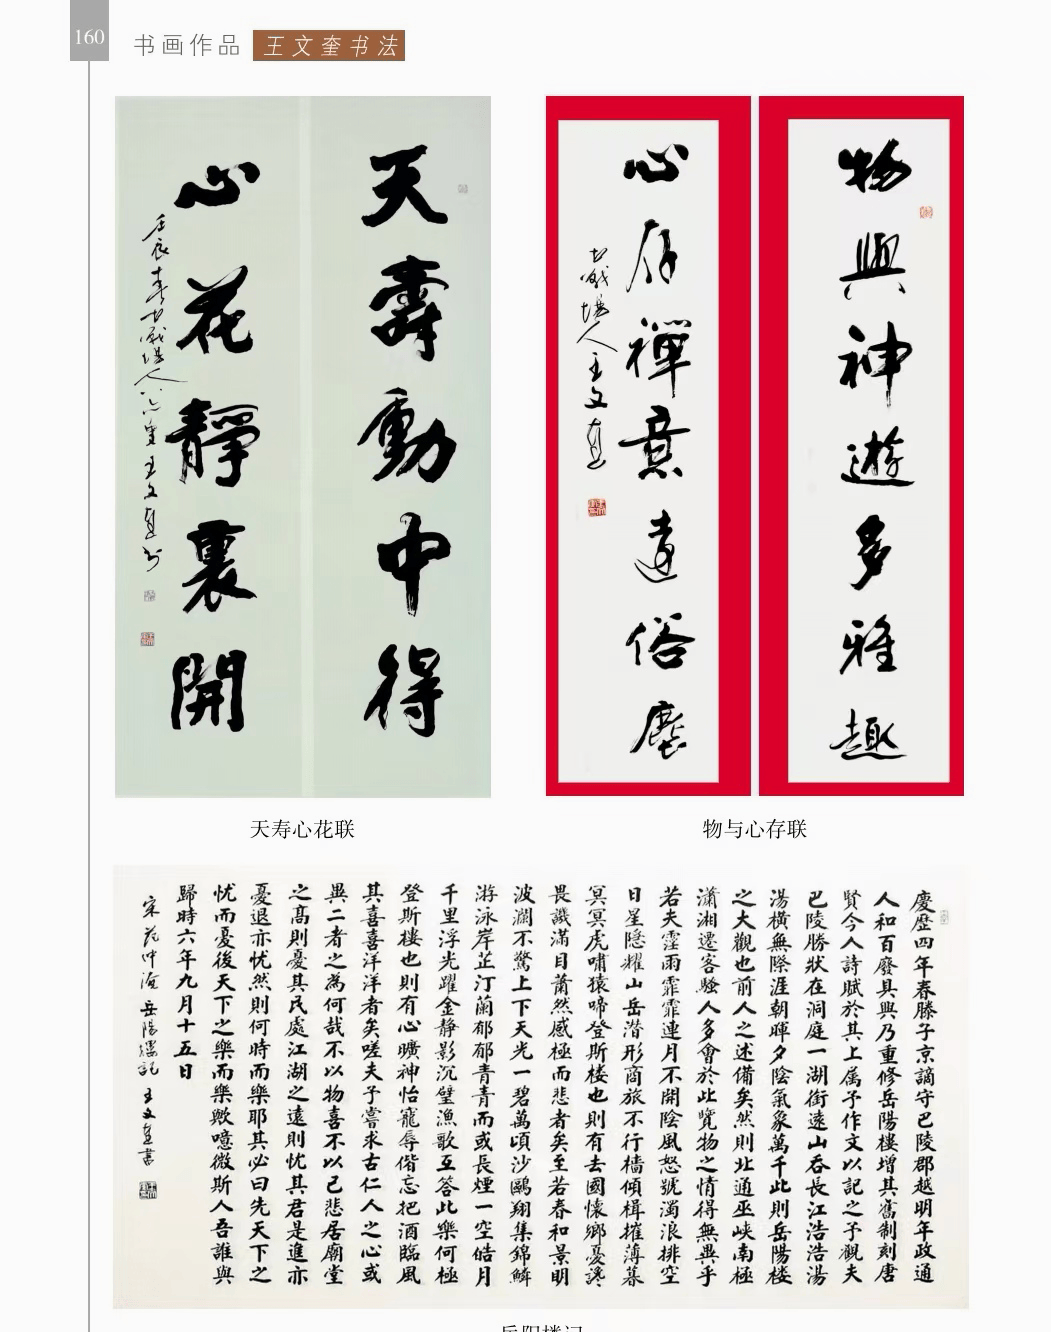 160
书画作品 王文奎书法
天壽動中得
心花靜裏開
壬辰春 古戲場人 王文奎书
天寿心花联
物與神遊多雅趣
心存禪意遠俗塵
古戲場人王文奎
物与心存联
慶歷四年春滕子京謫守巴陵郡越明年政通
人和百廢具興乃重修岳陽樓增其舊制刻唐
賢今人詩賦於其上属予作文以記之予觀夫
巴陵勝狀在洞庭一湖銜遠山吞長江浩浩湯
湯橫無際涯朝暉夕陰氣象萬千此則岳陽樓
之大觀也前人之述備矣然則北通巫峽南極
瀟湘遷客騷人多會於此覽物之情得無異乎
若夫霪雨霏霏連月不開陰風怒號濁浪排空
日星隱耀山岳潛形商旅不行檣傾楫摧薄暮
冥冥虎嘯猿啼登斯楼也則有去國懷鄉憂讒
畏譏滿目蕭然感極而悲者矣至若春和景明
波瀾不驚上下天光一碧萬頃沙鷗翔集錦鱗
游泳岸芷汀蘭郁郁青青而或長煙一空皓月
千里浮光躍金静影沉璧漁歌互答此樂何極
登斯樓也則有心曠神怡寵辱偕忘把酒臨風
其喜喜洋洋者矣嗟夫予嘗求古仁人之心或
異二者之為何哉不以物喜不以己悲居廟堂
之高則憂其民處江湖之遠則忧其君是進亦
憂退亦忧然則何時而樂耶其必曰先天下之
忧而憂後天下之樂而樂歟噫微斯人吾誰與
歸時六年九月十五日
宋范仲淹岳陽樓記 王文奎書
岳阳楼记